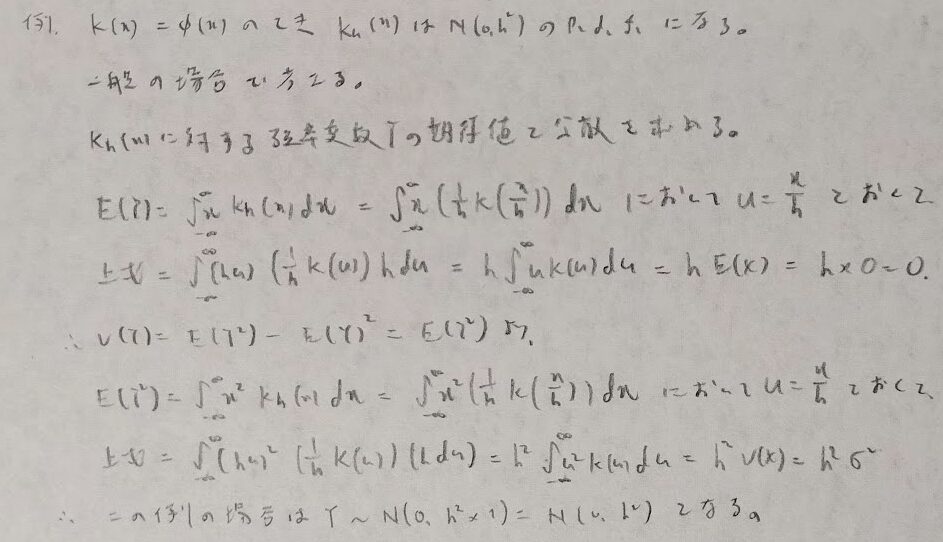 例. K(x) = φ(x) のとき Kh(x) は N(0,h²) の p.d.f. になる。
一般の場合で考える。
Kh(x)に対する確率変数Yの期待値と分散を求める。
E(Y)= ∫_{-∞}^{∞} x Kh(x)dx = ∫_{-∞}^{∞} x (1/h K(x/h)) dx において u= x/h とおくと
上式 = ∫_{-∞}^{∞} (hu) (1/h K(u)) h du = h ∫_{-∞}^{∞} u K(u)du = h E(X) = h×0=0.
∴ V(Y)= E(Y²) - E(Y)² = E(Y²) より,
E(Y²)= ∫_{-∞}^{∞} x² Kh(x) dx = ∫_{-∞}^{∞} x² (1/h K(x/h)) dx において u= x/h とおくと
上式 = ∫_{-∞}^{∞} (hu)² (1/h K(u)) (h du) = h² ∫_{-∞}^{∞} u² K(u) du = h² V(X) = h² σ²
∴ この例の場合は Y ~ N(0, h²×1) = N(0, h²) となる。